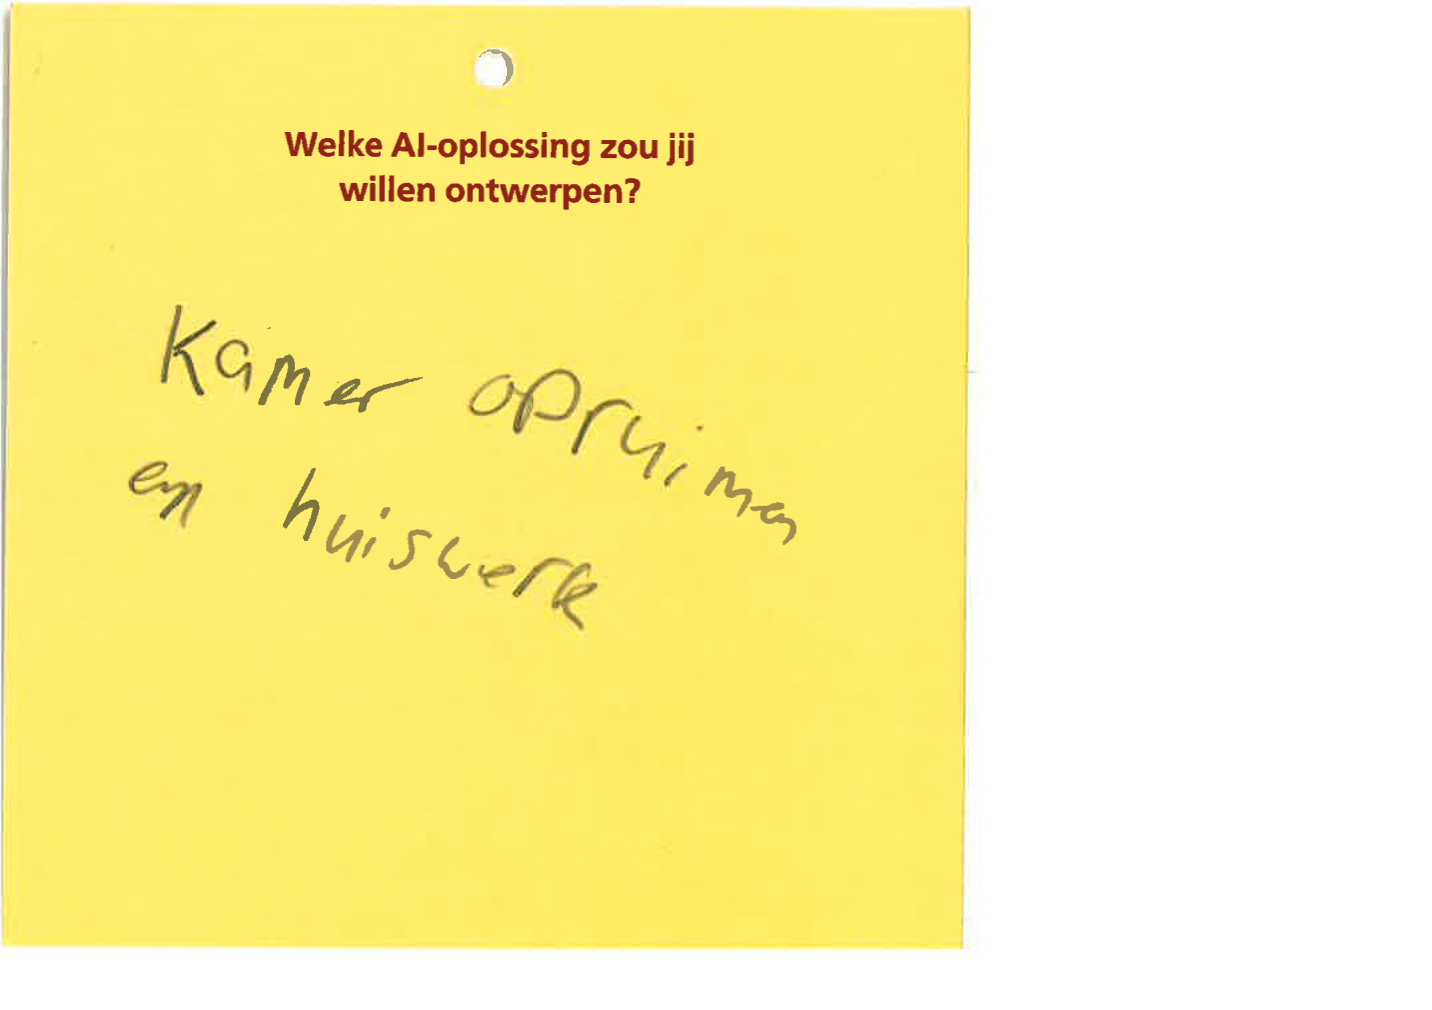 Welke AI-oplossing zou jij
willen ontwerpen?
Kamer opruimen
en huiswerk